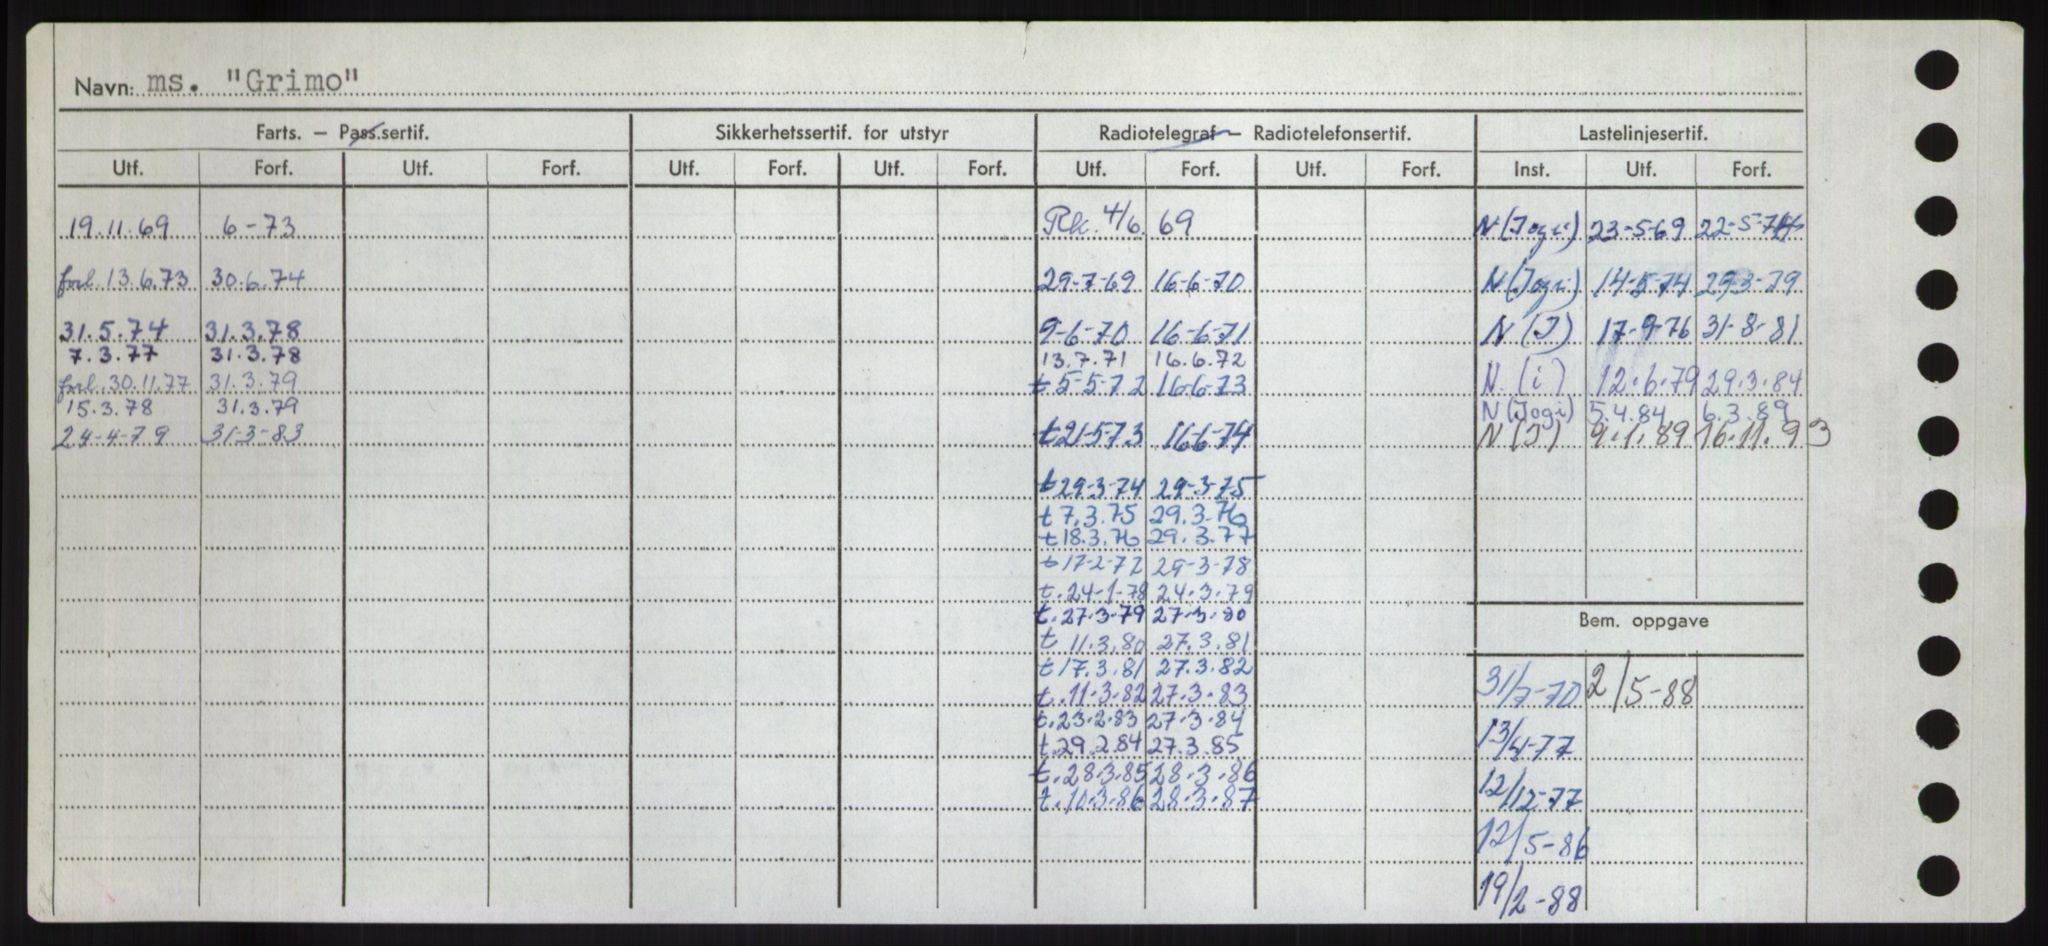 Navn: ms. "Grimo"
Farts. – Pass.sertif. Sikkerhetssertif. for utstyr Radiotelegraf – Radiotelefonsertif. Lastelinjesertif.
Utf. Forf. Utf. Forf. Utf. Forf. Utf. Forf. Utf. Forf. Utf. Forf. Inst. Utf. Forf.
19.11.69 6-73 Rk. 4/6. 69 N (Jogi) 23-5-69 22-5-74
forl. 13.6.73 30.6.74 29-7-69 16-6-70 N (Jogi) 14-5-74 29-3-79
31.5.74 31.3.78 9-6-70 16-6-71 N (J) 17-9-76 31-8-81
7.3.77 31.3.78 13.7.71 16.6.72
forl. 30.11.77 31.3.79 t 5-5-72 16-6-73 N. (i) 12.6.79 29.3.84
15.3.78 31.3.79 N (Jogi) 5.4.84 6.3.89
24-4-79 31-3-83 t 21-5-73 16-6-74 N (J) 9.1.89 16.11.93
t 29-3-74 29-3-75
t 7.3.75 29.3.76
t 18.3.76 29.3.77
t 17-2-77 29-3-78
t. 24-1-78 24.3.79
t. 27.3.79 27.3.80
Bem. oppgave
t 11.3.80 27.3.81
t 17.3.81 27.3.82
t. 11.3.82 27.3.83 31/7-70 2/5-88
t. 23.2.83 27.3.84
t. 29.2.84 27.3.85 13/4-77
t. 28.3.85 28.3.86
t. 10.3.86 28.3.87 12/12-77
12/5-86
19/2-88